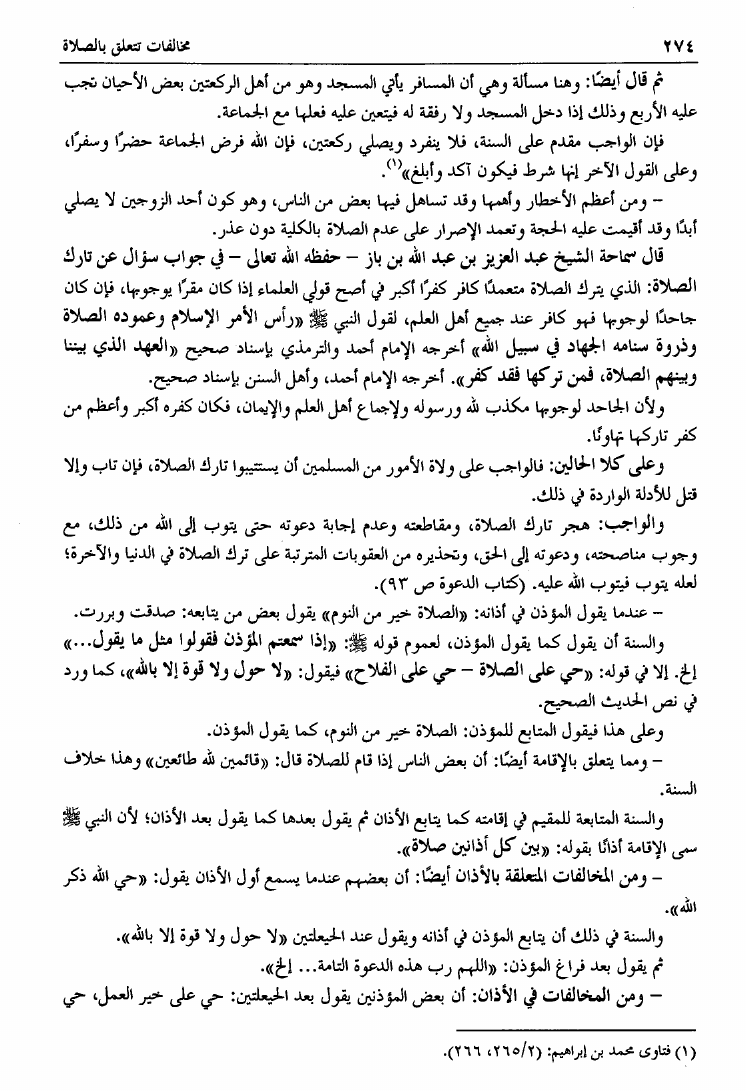 ٢٧٤
مخالفات تتعلق بالصلاة
ثم قال أيضًا: وهنا مسألة وهي أن المسافر يأتي المسجد وهو من أهل الركعتين بعض الأحيان تجب
عليه الأربع وذلك إذا دخل المسجد ولا رفقة له فيتعين عليه فعلها مع الجماعة.
فإن الواجب مقدم على السنة، فلا ينفرد ويصلي ركعتين، فإن الله فرض الجماعة حضرًا وسفرًا،
وعلى القول الآخر إنها شرط فيكون آكد وأبلغ»(١).
– ومن أعظم الأخطار وأهمها وقد تساهل فيها بعض من الناس، وهو كون أحد الزوجين لا يصلي
أبدًا وقد أقيمت عليه الحجة وتعمد الإصرار على عدم الصلاة بالكلية دون عذر.
قال سماحة الشيخ عبد العزيز بن عبد الله بن باز – حفظه الله تعالى – في جواب سؤال عن تارك
الصلاة: الذي يترك الصلاة متعمدًا كافر كفرًا أكبر في أصح قولي العلماء إذا كان مقرًا بوجوبها، فإن كان
جاحدًا لوجوبها فهو كافر عند جميع أهل العلم، لقول النبي ﷺ «رأس الأمر الإسلام وعموده الصلاة
وذروة سنامه الجهاد في سبيل الله» أخرجه الإمام أحمد والترمذي بإسناد صحيح «العهد الذي بيننا
وبينهم الصلاة، فمن تركها فقد كفر». أخرجه الإمام أحمد، وأهل السنن بإسناد صحيح.
ولأن الجاحد لوجوبها مكذب لله ورسوله ولإجماع أهل العلم والإيمان، فكان كفره أكبر وأعظم من
كفر تاركها تهاونًا.
وعلى كلا الحالين: فالواجب على ولاة الأمور من المسلمين أن يستتيبوا تارك الصلاة، فإن تاب وإلا
قتل للأدلة الواردة في ذلك.
والواجب: هجر تارك الصلاة، ومقاطعته وعدم إجابة دعوته حتى يتوب إلى الله من ذلك، مع
وجوب مناصحته، ودعوته إلى الحق، وتحذيره من العقوبات المترتبة على ترك الصلاة في الدنيا والآخرة؛
لعله يتوب فيتوب الله عليه. (كتاب الدعوة ص ٩٣).
– عندما يقول المؤذن في أذانه: «الصلاة خير من النوم» يقول بعض من يتابعه: صدقت وبررت.
والسنة أن يقول كما يقول المؤذن، لعموم قوله ﷺ: «إذا سمعتم المؤذن فقولوا مثل ما يقول...»
إلخ. إلا في قوله: «حي على الصلاة – حي على الفلاح» فيقول: «لا حول ولا قوة إلا بالله»، كما ورد
في نص الحديث الصحيح.
وعلى هذا فيقول المتابع للمؤذن: الصلاة خير من النوم، كما يقول المؤذن.
– ومما يتعلق بالإقامة أيضًا: أن بعض الناس إذا قام للصلاة قال: «قائمين لله طائعين» وهذا خلاف
السنة.
والسنة المتابعة للمقيم في إقامته كما يتابع الأذان ثم يقول بعدها كما يقول بعد الأذان؛ لأن النبي ﷺ
سمى الإقامة أذانًا بقوله: «بين كل أذانين صلاة».
– ومن المخالفات المتعلقة بالأذان أيضًا: أن بعضهم عندما يسمع أول الأذان يقول: «حي الله ذكر
الله».
والسنة في ذلك أن يتابع المؤذن في أذانه ويقول عند الحيعلتين «لا حول ولا قوة إلا بالله».
ثم يقول بعد فراغ المؤذن: «اللهم رب هذه الدعوة التامة... إلخ».
– ومن المخالفات في الأذان: أن بعض المؤذنين يقول بعد الحيعلتين: حي على خير العمل، حي
(١) فتاوى محمد بن إبراهيم: (٢/ ٢٦٥، ٢٦٦).